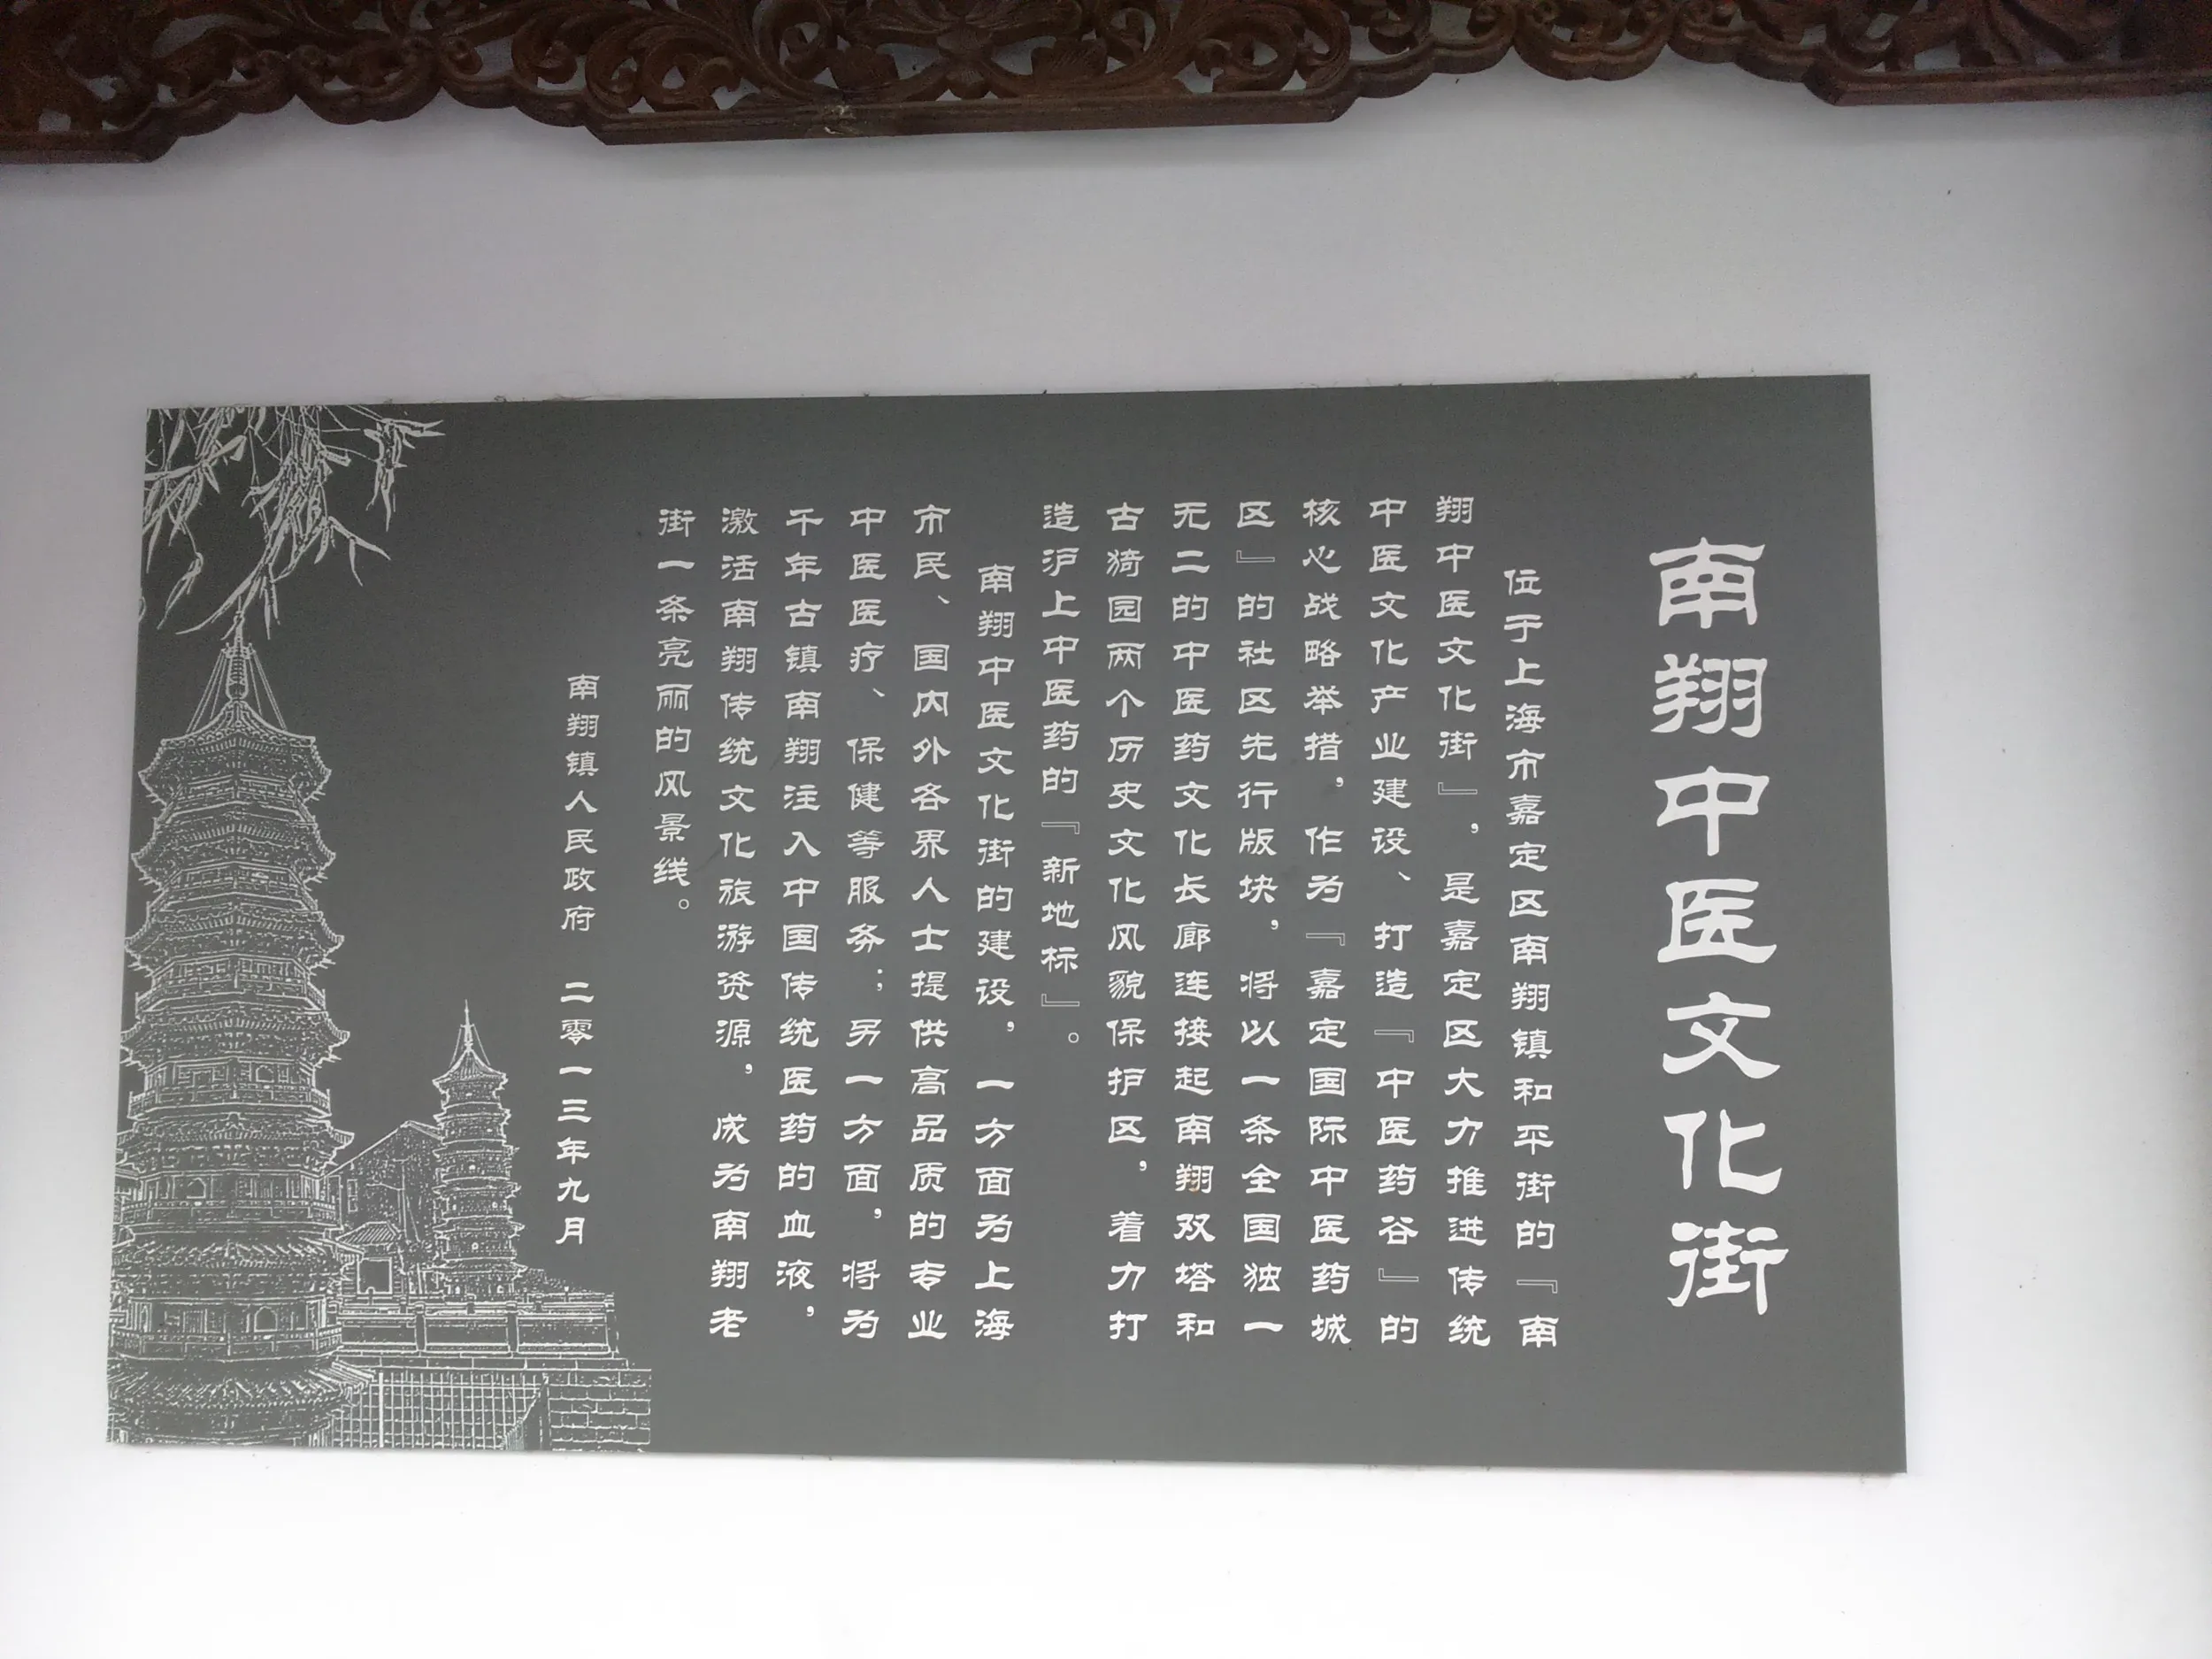 南翔中医文化街
位于上海市嘉定区南翔镇和平街的『南
翔中医文化街』，是嘉定区大力推进传统
中医文化产业建设、打造『中医药谷』的
核心战略举措，作为『嘉定国际中医药城
区』的社区先行版块，将以一条全国独一
无二的中医药文化长廊连接起南翔双塔和
古猗园两个历史文化风貌保护区，着力打
造沪上中医药的『新地标』。
南翔中医文化街的建设，一方面为上海
市民、国内外各界人士提供高品质的专业
中医医疗、保健等服务；另一方面，将为
千年古镇南翔注入中国传统医药的血液，
激活南翔传统文化旅游资源，成为南翔老
街一条亮丽的风景线。
南翔镇人民政府 二零一三年九月